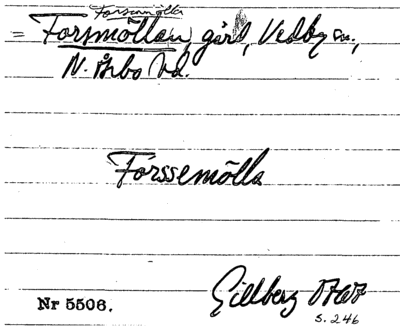 Forsamölla
= Forsmöllan, gård, Vedby sn.,
N. Åsbo hd.
Forssemölla
Gillberg 1767
s. 246
Nr 5506.